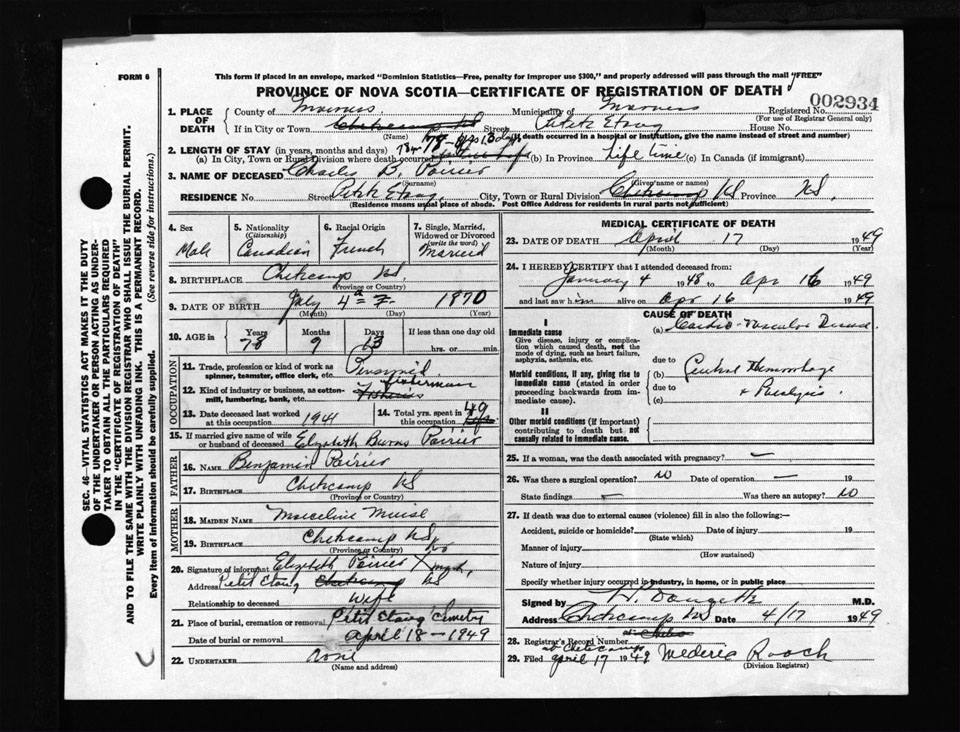 FORM 6
This form if placed in an envelope, marked "Dominion Statistics—Free, penalty for improper use $300," and properly addressed will pass through the mail "FREE"
PROVINCE OF NOVA SCOTIA—CERTIFICATE OF REGISTRATION OF DEATH
002934
1. PLACE OF DEATH County of Inverness Municipality of Inverness Registered No. (For use of Registrar General only)
If in City or Town Cheticamp NS Street Petit Etang House No.
(Name) (If death occurred in a hospital or institution, give the name instead of street and number)
2. LENGTH OF STAY (in years, months and days)
(a) In City, Town or Rural Division where death occurred 78 yrs (b) In Province Life time (c) In Canada (if immigrant)
3. NAME OF DECEASED Charles B. Poirier
(Surname) (Given name or names)
RESIDENCE No. Street Petit Etang, City, Town or Rural Division Cheticamp NS Province NS.
(Residence means usual place of abode. Post Office Address for residents in rural parts not sufficient)
4. Sex Male
5. Nationality (Citizenship) Canadian
6. Racial Origin French
7. Single, Married, Widowed or Divorced (write the word) Married
8. BIRTHPLACE Cheticamp NS
(Province or Country)
9. DATE OF BIRTH July 4 1870
(Month) (Day) (Year)
10. AGE in Years 78 Months 9 Days 13 If less than one day old hrs. or min.
OCCUPATION
11. Trade, profession or kind of work as spinner, teamster, office clerk, etc. Pensioned
12. Kind of industry or business, as cotton-mill, lumbering, bank, etc. fisherman Fisheries
13. Date deceased last worked at this occupation 1941
14. Total yrs. spent in this occupation 49
15. If married give name of wife or husband of deceased Elizabeth Burns Poirier
FATHER
16. NAME Benjamin Poirier
17. BIRTHPLACE Cheticamp NS
(Province or Country)
MOTHER
18. MAIDEN NAME Marceline Muise
19. BIRTHPLACE Cheticamp NS
(Province or Country)
20. Signature of informant Elizabeth Poirier X
Address Petit Etang Cheticamp NS
Relationship to deceased Wife
21. Place of burial, cremation or removal Petit Etang Cemetery
Date of burial or removal April 18 - 1949
22. UNDERTAKER None
(Name and address)
MEDICAL CERTIFICATE OF DEATH
23. DATE OF DEATH April 17 1949
(Month) (Day) (Year)
24. I HEREBY CERTIFY that I attended deceased from:
January 4 1948 to Apr 16 1949
and last saw him alive on Apr 16 1949
CAUSE OF DEATH
I
Immediate cause
Give disease, injury or complication which caused death, not the mode of dying, such as heart failure, asphyxia, asthenia, etc.
(a) Cardio-Vascular Disease
due to
Morbid conditions, if any, giving rise to immediate cause (stated in order proceeding backwards from immediate cause).
(b) Cerebral Hemorrhage
due to
(c) + Paralysis
II
Other morbid conditions (if important) contributing to death but not causally related to immediate cause.
25. If a woman, was the death associated with pregnancy? —
26. Was there a surgical operation? no Date of operation — 19
State findings — Was there an autopsy? no
27. If death was due to external causes (violence) fill in also the following:—
Accident, suicide or homicide? Date of injury 19
(State which)
Manner of injury
(How sustained)
Nature of injury
Specify whether injury occurred in industry, in home, or in public place
Signed by W. Doucette M.D.
Address Cheticamp NS Date 4/17 1949
28. Registrar's Record Number
at Cheticamp
29. Filed April 17 1949 Mederic Roach
(Division Registrar)
SEC. 46—VITAL STATISTICS ACT MAKES IT THE DUTY
OF THE UNDERTAKER OR PERSON ACTING AS UNDER-
TAKER TO OBTAIN ALL THE PARTICULARS REQUIRED
IN THE "CERTIFICATE OF REGISTRATION OF DEATH"
AND TO FILE THE SAME WITH THE DIVISION REGISTRAR WHO SHALL ISSUE THE BURIAL PERMIT.
WRITE PLAINLY WITH UNFADING INK. THIS IS A PERMANENT RECORD.
Every item of information should be carefully supplied. (See reverse side for instructions.)